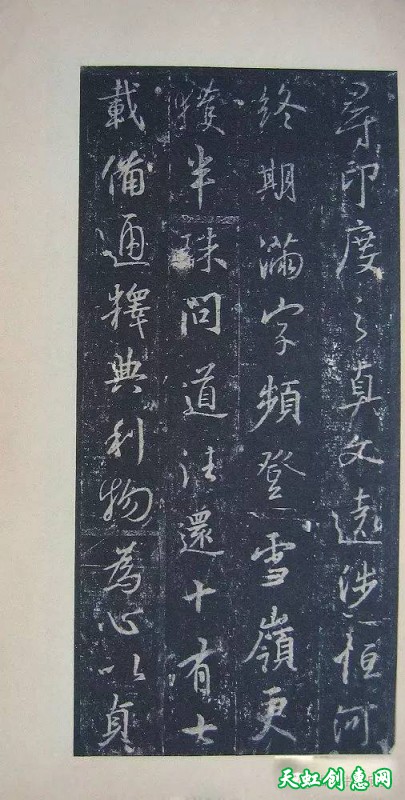 尋印度之真文遠涉恒河
終期滿字頻登雪嶺更
獲半珠問道往還十有七
載備通釋典利物為心以貞
天虹创惠网